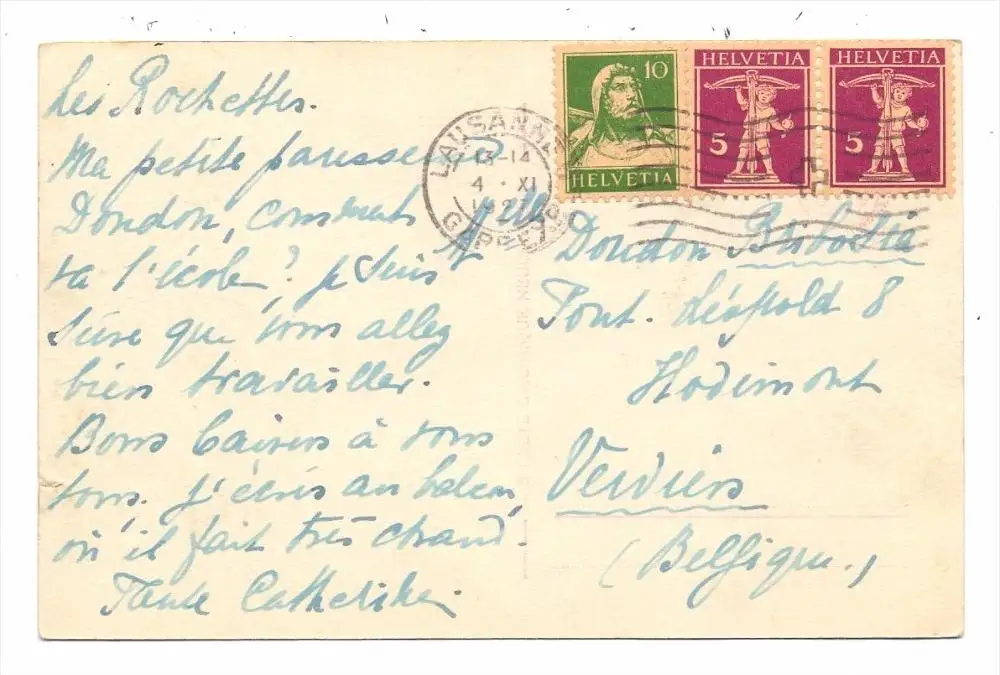 Les Rochettes.
Ma petite
Doudon, comment
ta l'école? je suis
sûre que vous allez
bien travailler.
Bons baisers à vous
tous. j'écris au balcon,
où il fait très chaud.
Tante Catherine.
LAUSANNE
13-14
4 · XI
1927
GARE EXP.
10
HELVETIA
HELVETIA
5
HELVETIA
5
Mlle
Doudon
Pont. Léopold 8
Hodimont
Verviers
(Belgique.)